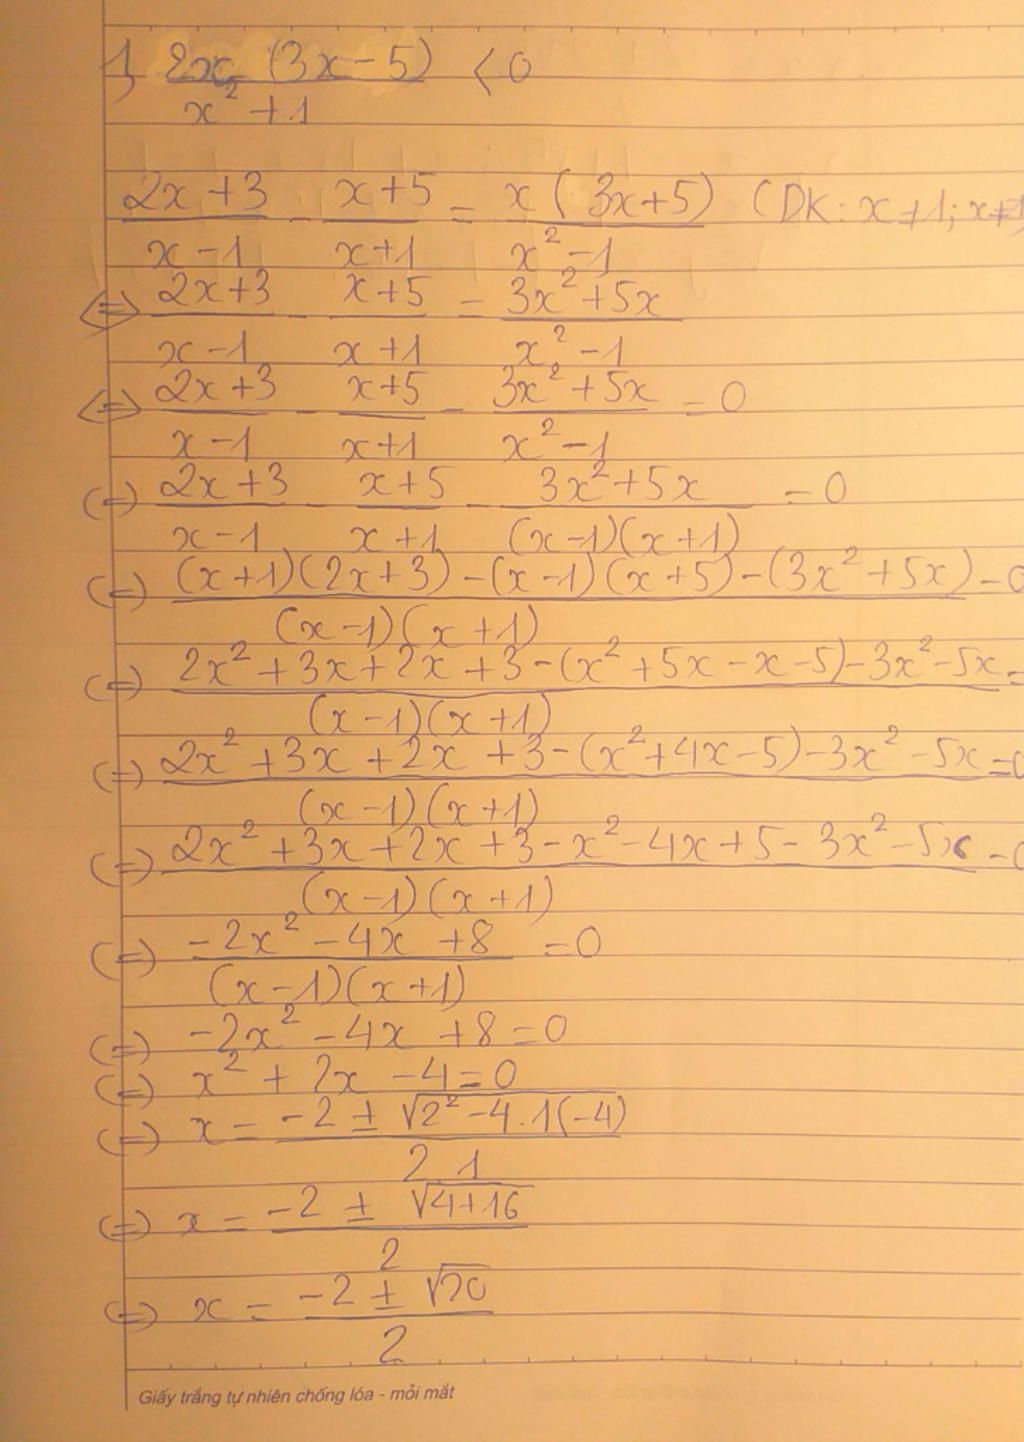 1, 2x (3x-5) / x² + 1 < 0
2x + 3 / x - 1 - x + 5 / x + 1 = x ( 3x+5) / x² - 1 (DK: x ≠ 1; x ≠
(=) 2x+3 / x - 1 - x + 5 / x + 1 = 3x² + 5x / x² - 1
(=) 2x + 3 / x - 1 - x+5 / x+1 - 3x² + 5x / x² - 1 = 0
(=) 2x + 3 / x - 1 - x + 5 / x + 1 - 3x² + 5x / (x-1)(x+1) = 0
(=) (x+1)(2x+3) - (x-1)(x+5) - (3x² + 5x) / (x-1)(x+1) = 0
(=) 2x² + 3x + 2x + 3 - (x² + 5x - x - 5) - 3x² - 5x / (x-1)(x+1) =
(=) 2x² + 3x + 2x + 3 - (x² + 4x - 5) - 3x² - 5x / (x-1)(x+1) = 0
(=) 2x² + 3x + 2x + 3 - x² - 4x + 5 - 3x² - 5x / (x-1)(x+1) = 0
(=) -2x² - 4x + 8 / (x-1)(x+1) = 0
(=) -2x² - 4x + 8 = 0
(=) x² + 2x - 4 = 0
(=) x = -2 ± √2² - 4.1(-4) / 2 1
(=) x = -2 ± √4+16 / 2
(=) x = -2 ± √20 / 2
Giấy trắng tự nhiên chống lóa - mỏi mắt